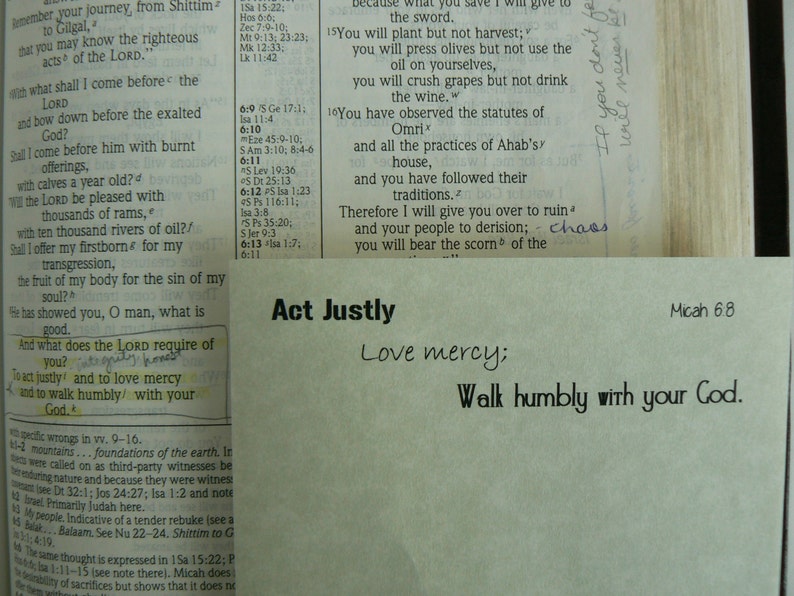 Remember your journey from Shittim g
to Gilgal,
that you may know the righteous
acts b of the LORD."
With what shall I come before c the
LORD
and bow down before the exalted
God?
Shall I come before him with burnt
offerings,
with calves a year old? d
Will the LORD be pleased with
thousands of rams, e
with ten thousand rivers of oil? f
Shall I offer my firstborn g for my
transgression,
the fruit of my body for the sin of my
soul? h
He has showed you, O man, what is
good.
And what does the LORD require of
you? integrity; honest
To act justly i and to love mercy
and to walk humbly j with your
God. k
with specific wrongs in vv. 9–16.
6:1–2 mountains . . . foundations of the earth. In
objects were called on as third-party witnesses be
their enduring nature and because they were witness
covenant (see Dt 32:1; Jos 24:27; Isa 1:2 and note
6:2 Israel. Primarily Judah here.
6:3 My people. Indicative of a tender rebuke (see a
6:5 Balak . . . Balaam. See Nu 22–24. Shittim to G
3:1; 4:19.
6:6 The same thought is expressed in 1Sa 15:22; P
Isa 1:11–15 (see note there). Micah does
desirability of sacrifices but shows that it does no
1Sa 15:22;
Hos 6:6;
Zec 7:9-10;
Mt 9:13; 23:23;
Mk 12:33;
Lk 11:42
6:9 rS Ge 17:1;
Isa 11:4
6:10
mEze 45:9-10;
S Am 3:10; 8:4-6
6:11
nS Lev 19:36
oS Dt 25:13
6:12 pS Isa 1:23
qS Ps 116:11;
Isa 3:8
rS Ps 35:20;
S Jer 9:3
6:13 sIsa 1:7;
6:11
because what you save I will give to
the sword.
15You will plant but not harvest; v
you will press olives but not use the
oil on yourselves,
you will crush grapes but not drink
the wine. w
16You have observed the statutes of
Omri x
and all the practices of Ahab's y
house,
and you have followed their
traditions. z
Therefore I will give you over to ruin a
and your people to derision; - chaos
you will bear the scorn b of the
If you don't
will never
Act Justly
Micah 6:8
Love mercy;
Walk humbly with your God.